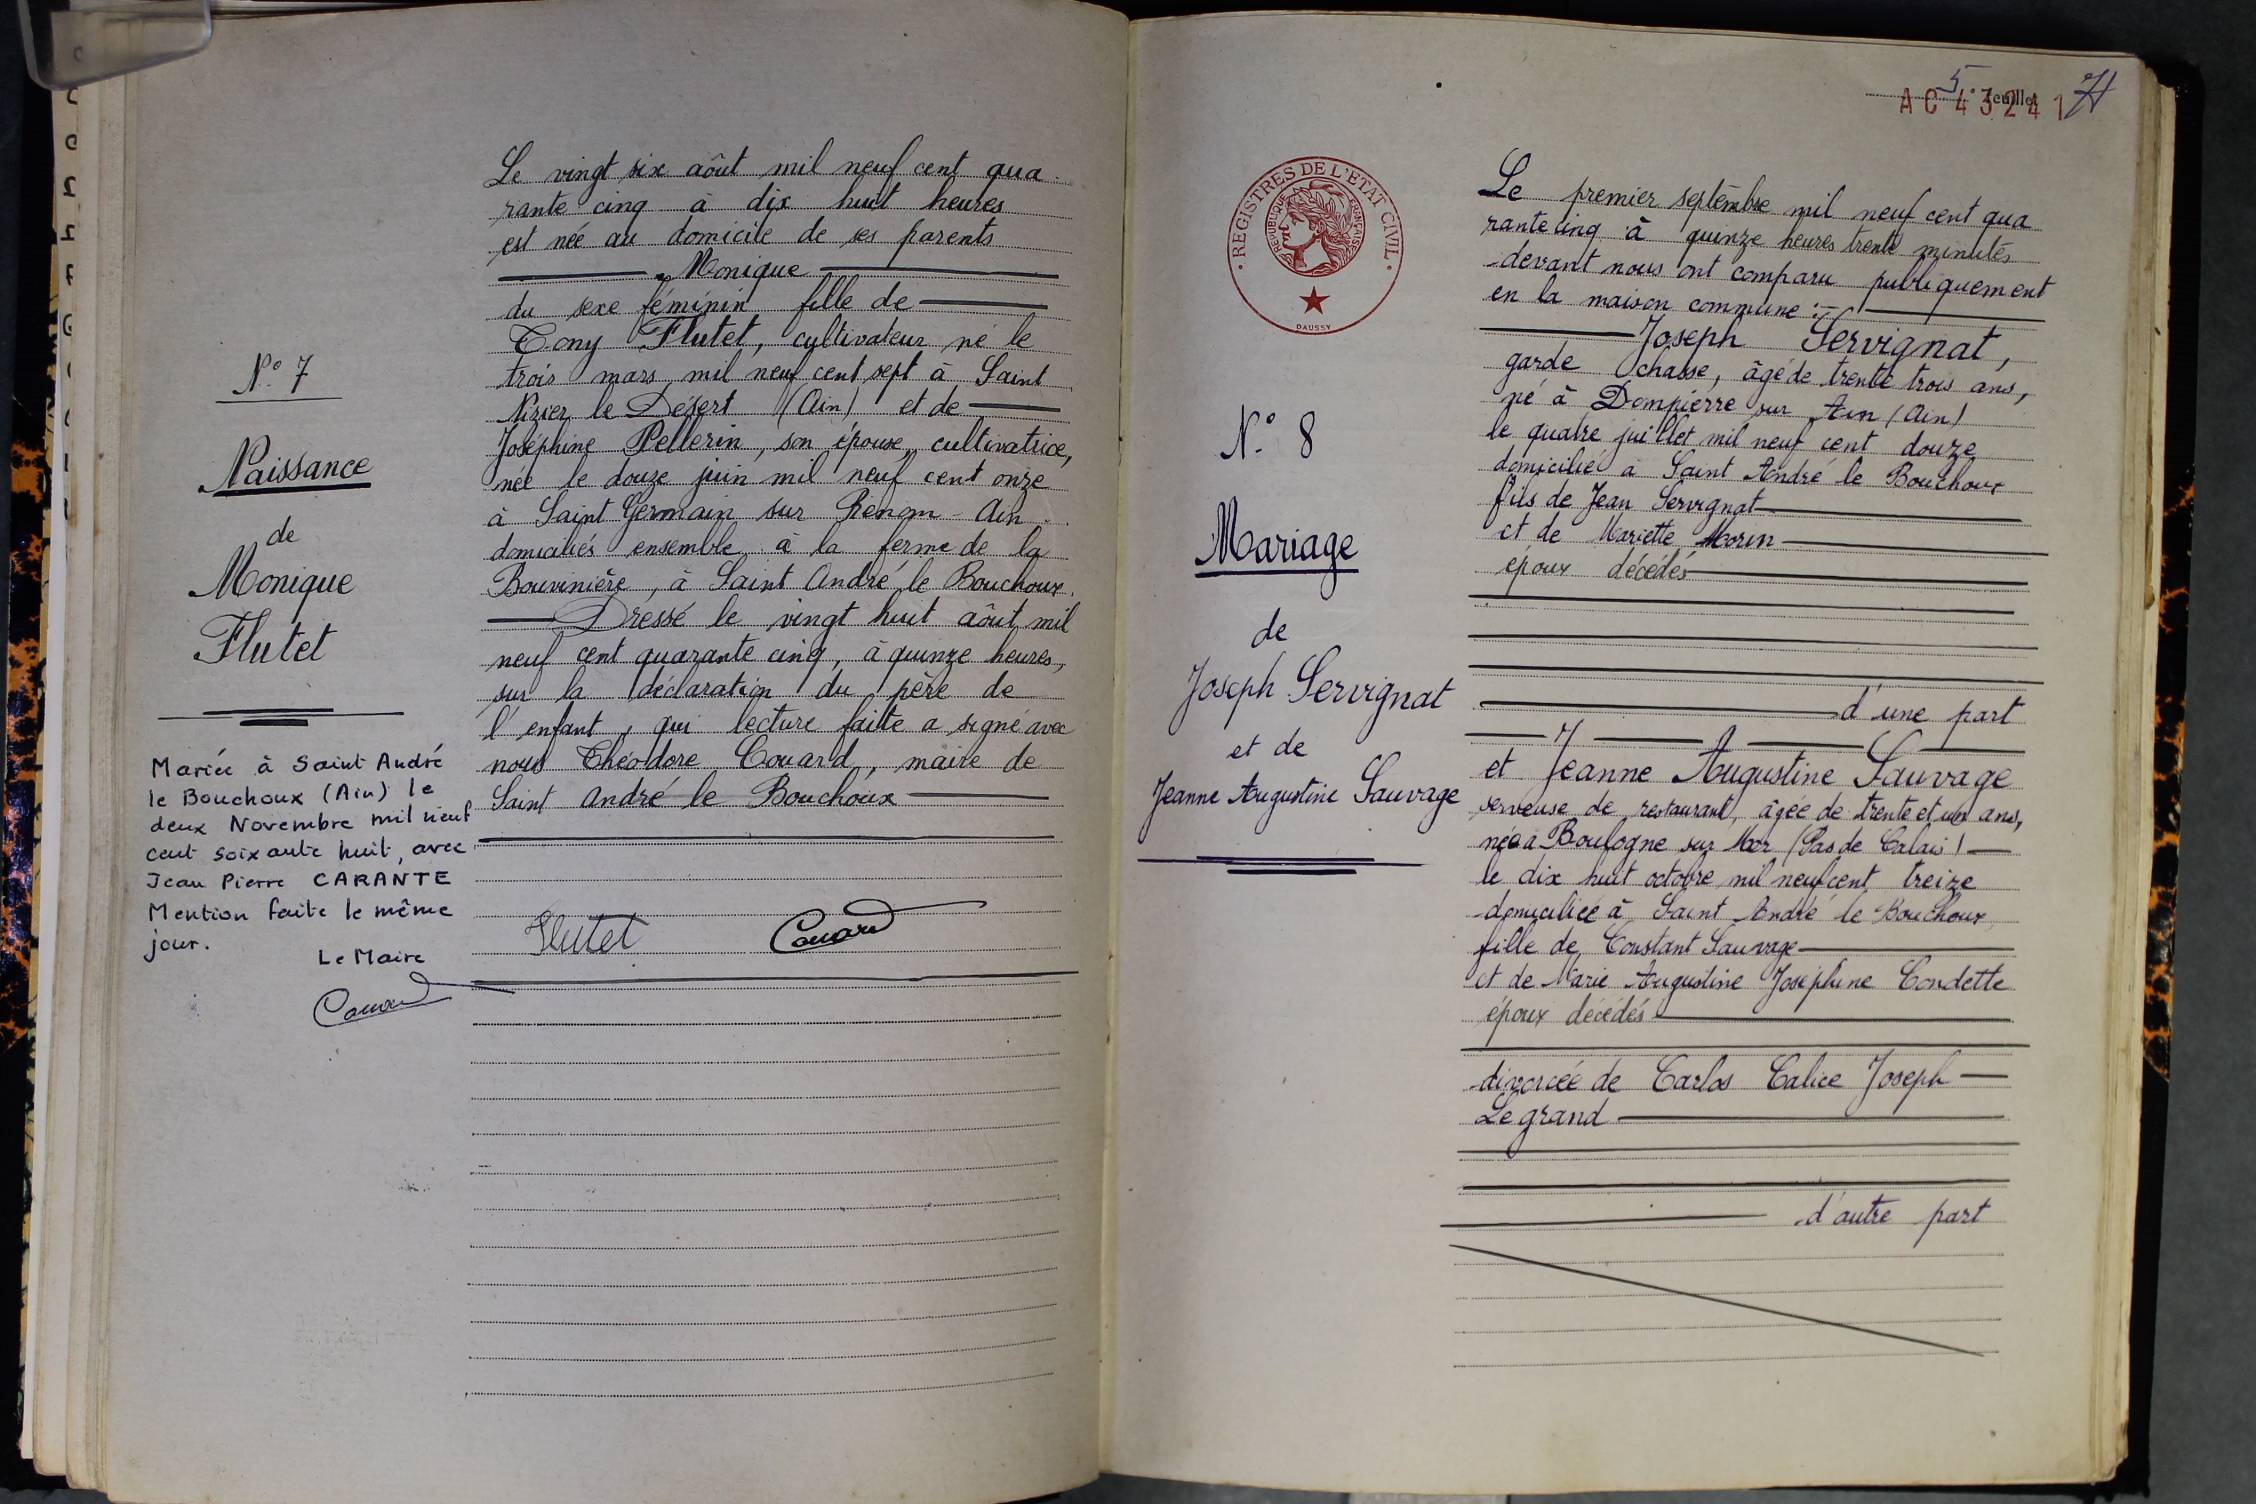 N° 7
Naissance
de
Monique
Flutet
Mariée à Saint André
le Bouchoux (Ain) le
deux Novembre mil neuf
cent soixante huit, avec
Jean Pierre CARANTE
Mention faite le même
jour.
Le Maire
Couard
Le vingt six aôut mil neuf cent qua
rante cinq à dix huit heures
est née au domicile de ses parents
Monique
du sexe féminin fille de
Tony Flutet, cultivateur né le
trois mars mil neuf cent sept à Saint
Nizier le Désert (Ain) et de
Joséphine Pellerin, son épouse, cultivatrice,
née le douze juin mil neuf cent onze
à Saint Germain sur Renom - Ain.
domiciliés ensemble à la ferme de la
Bouvinière, à Saint André le Bouchoux.
Dressé le vingt huit aôut mil
neuf cent quarante cinq, à quinze heures,
sur la déclaration du père de
l'enfant, qui lecture faite a signé avec
nous Théodore Couard, maire de
Saint André le Bouchoux
Flutet Couard
5 e Feuillet
AC 43241
REGISTRES DE L'ETAT CIVIL
REPUBLIQUE FRANÇAISE
DAUSSY
N° 8
Mariage
de
Joseph Servignat
et de
Jeanne Augustine Sauvage
Le premier septembre mil neuf cent qua
rante cinq à quinze heures trente minutes
devant nous ont comparu publiquement
en la maison commune :
Joseph Servignat,
garde chasse, âgé de trente trois ans,
né à Dompierre sur Ain (Ain)
le quatre juillet mil neuf cent douze
domicilié à Saint André le Bouchoux
fils de Jean Servignat
et de Mariette Morin
époux décédés
d'une part
et Jeanne Augustine Sauvage
serveuse de restaurant, âgée de trente et un ans,
née à Boulogne sur Mer (Pas de Calais)
le dix huit octobre mil neuf cent treize
domiciliée à Saint André le Bouchoux
fille de Constant Sauvage
et de Marie Augustine Joséphine Condette
époux décédés
divorcée de Carlos Calice Joseph
Legrand
d'autre part